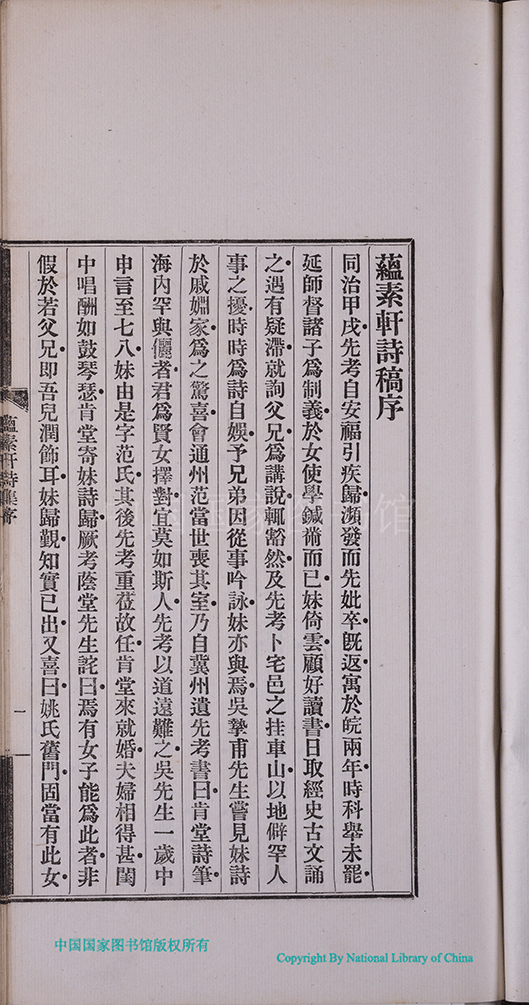 蘊素軒詩稿序
同治甲戌先考自安福引疾歸瀕發而先妣卒旣返寓於皖兩年時科舉未罷
延師督諸子爲制義於女使學鍼黹而已妹倚雲顧好讀書日取經史古文誦
之遇有疑滯就詢父兄爲講說輒豁然及先考卜宅邑之挂車山以地僻罕人
事之擾時時爲詩自娛予兄弟因從事吟詠妹亦與焉吳摯甫先生嘗見妹詩
於戚婣家爲之驚喜會通州范當世喪其室乃自冀州遺先考書曰肯堂詩筆
海內罕與儷者君爲賢女擇對宜莫如斯人先考以道遠難之吳先生一歲中
申言至七八妹由是字范氏其後先考重莅故任肯堂來就婚夫婦相得甚閨
中唱酬如鼓琴瑟肯堂寄妹詩歸厥考蔭堂先生詫曰焉有女子能爲此者非
假於若父兄即吾兒潤飾耳妹歸覲知實已出又喜曰姚氏舊門固當有此女
蘊素軒詩集序
一
中国国家图书馆版权所有
Copyright By National Library of China